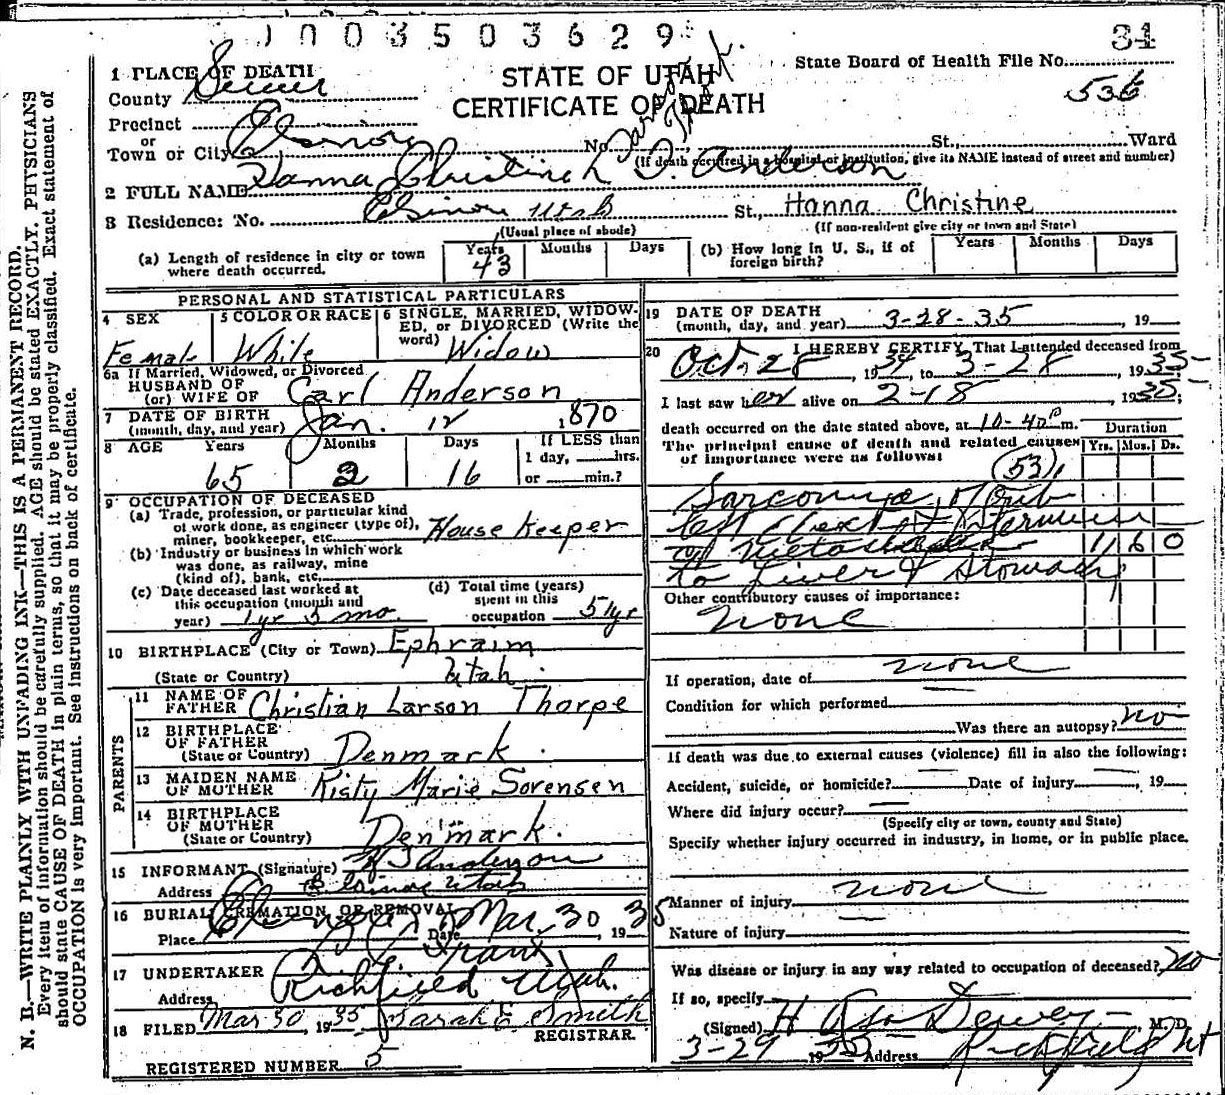 1003503629
34
STATE OF UTAH
CERTIFICATE OF DEATH
State Board of Health File No.
536
1 PLACE OF DEATH
County Sevier
Precinct
or
Town or City Elsinore No. St., Ward
(If death occurred in a hospital or institution, give its NAME instead of street and number)
2 FULL NAME Hanna Christinah T. Anderson
3 Residence: No. Elsinore Utah St., Hanna Christine
(Usual place of abode) (If non-resident give city or town and State)
(a) Length of residence in city or town where death occurred. Years 43 Months Days
(b) How long in U. S., if of foreign birth? Years Months Days
PERSONAL AND STATISTICAL PARTICULARS
4 SEX Female
5 COLOR OR RACE White
6 SINGLE, MARRIED, WIDOWED, or DIVORCED (Write the word) Widow
6a If Married, Widowed, or Divorced
HUSBAND OF
(or) WIFE OF Carl Anderson
7 DATE OF BIRTH
(month, day, and year) Jan. 12 1870
8 AGE Years 65 Months 2 Days 16 If LESS than 1 day, hrs. or min.?
9 OCCUPATION OF DECEASED
(a) Trade, profession, or particular kind
of work done, as engineer (type of),
miner, bookkeeper, etc. House Keeper
(b) Industry or business in which work
was done, as railway, mine
(kind of), bank, etc.
(c) Date deceased last worked at
this occupation (month and
year) 1 yr 5 mo.
(d) Total time (years)
spent in this
occupation 51 yr
10 BIRTHPLACE (City or Town) Ephraim
(State or Country) Utah
PARENTS
11 NAME OF
FATHER Christian Larson Thorpe
12 BIRTHPLACE
OF FATHER
(State or Country) Denmark.
13 MAIDEN NAME
OF MOTHER Kisty Marie Sorensen
14 BIRTHPLACE
OF MOTHER
(State or Country) Denmark.
15 INFORMANT (Signature) Anderson
Address Elsinore Utah
16 BURIAL, CREMATION OR REMOVAL
Place Date Mar. 30, 1935
17 UNDERTAKER
Address Richfield Utah.
18 FILED Mar 30, 1935 Sarah E. Smith
REGISTRAR.
REGISTERED NUMBER 5
19 DATE OF DEATH
(month, day, and year) 3-28-35, 19
20 I HEREBY CERTIFY, That I attended deceased from
Oct. 28, 1934, to 3-28, 1935
I last saw her alive on 2-18, 1935;
death occurred on the date stated above, at 10-40 P m.
The principal cause of death and related causes
of importance were as follows:
Duration
Yrs. Mos. Ds.
(53)
Sarcoma of
left Chest & Sternum
1 6 0
to Liver & Stomach
Other contributory causes of importance:
none
If operation, date of none
Condition for which performed
Was there an autopsy? no
If death was due to external causes (violence) fill in also the following:
Accident, suicide, or homicide? Date of injury , 19
Where did injury occur?
(Specify city or town, county and State)
Specify whether injury occurred in industry, in home, or in public place.
none
Manner of injury
Nature of injury
Was disease or injury in any way related to occupation of deceased? no
If so, specify
(Signed) H Asa Dewey M. D.
3-29, 1935 Address Richfield Ut
N. B.—WRITE PLAINLY WITH UNFADING INK—THIS IS A PERMANENT RECORD.
Every item of information should be carefully supplied. AGE should be stated EXACTLY. PHYSICIANS
should state CAUSE OF DEATH in plain terms, so that it may be properly classified. Exact statement of
OCCUPATION is very important. See instructions on back of certificate.